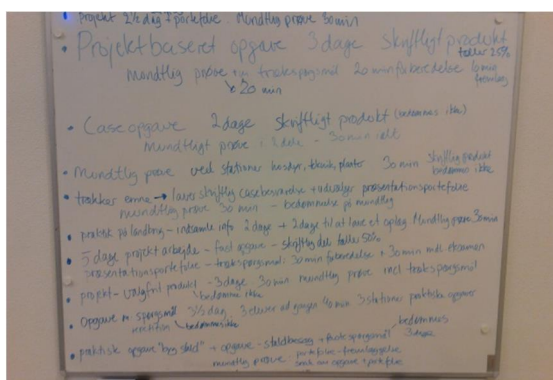 • projekt 2½ dag + portefølie. Mundtlig prøve 30 min
• Projektbaseret opgave 3 dage skriftligt produkt
tæller 25%
mundtlig prøve m trækspørgsmål 20 min forberedelse 10 min
20 min fremlæg
• Case opgave 2 dage skriftligt produkt (bedømmes ikke)
Mundtligt prøve i 2 dele - 30 min ialt
• Mundtlig prøve ved stationer husdyr, teknik, planter 30 min skriftlig produkt
bedømmes ikke
• trækker emne → laver skriftlig casebesvarelse + udvælger præsentationsportefølie
mundtlig prøve 30 min - bedømmelse på mundtlig
• praktisk på landbrug - indsamle info 2 dage + 2 dage til at lave et oplæg Mundtlig prøve 30 min
• 5 dage projekt arbejde - fast opgave - skriftlig del tæller 50%
præsentationsportefølie - trækspørgsmål: 30 min forberedelse + 30 min mdl. eksamen
• projekt - valgfrit produkt - 3 dage 30 min mundtlig prøve incl trækspørgsmål
bedømmes ikke
• Opgave m spørgsmål 3½ dag 3 elever ad gangen 40 min 3 stationer praktiske opgaver
bedømmes ikke
• praktisk opgave "byg stald" + opgave - staldbesøg + faste spørgsmål bedømmes
3 dage
mundtlig prøve: portefølie - fremlæggelse
opgave + portefølie